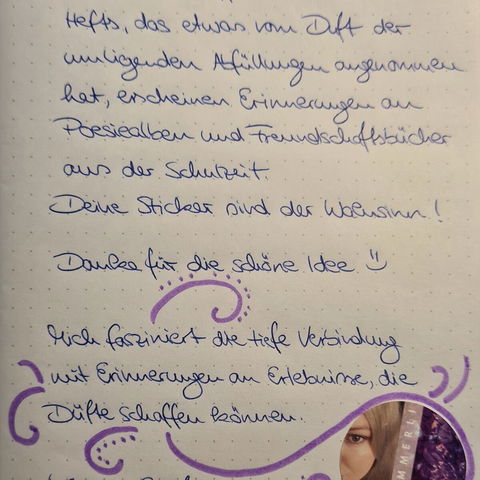 Hefts, das etwas vom Duft der
umliegenden Abfüllungen angenommen
hat, erscheinen Erinnerungen an
Poesiealben und Freundschaftsbücher
aus der Schulzeit.
Deine Sticker sind der Wahnsinn!
Danke für die schöne Idee
Mich fasziniert die tiefe Verbindung
mit Erinnerungen an Erlebnisse, die
Düfte schaffen können.
MMERLI